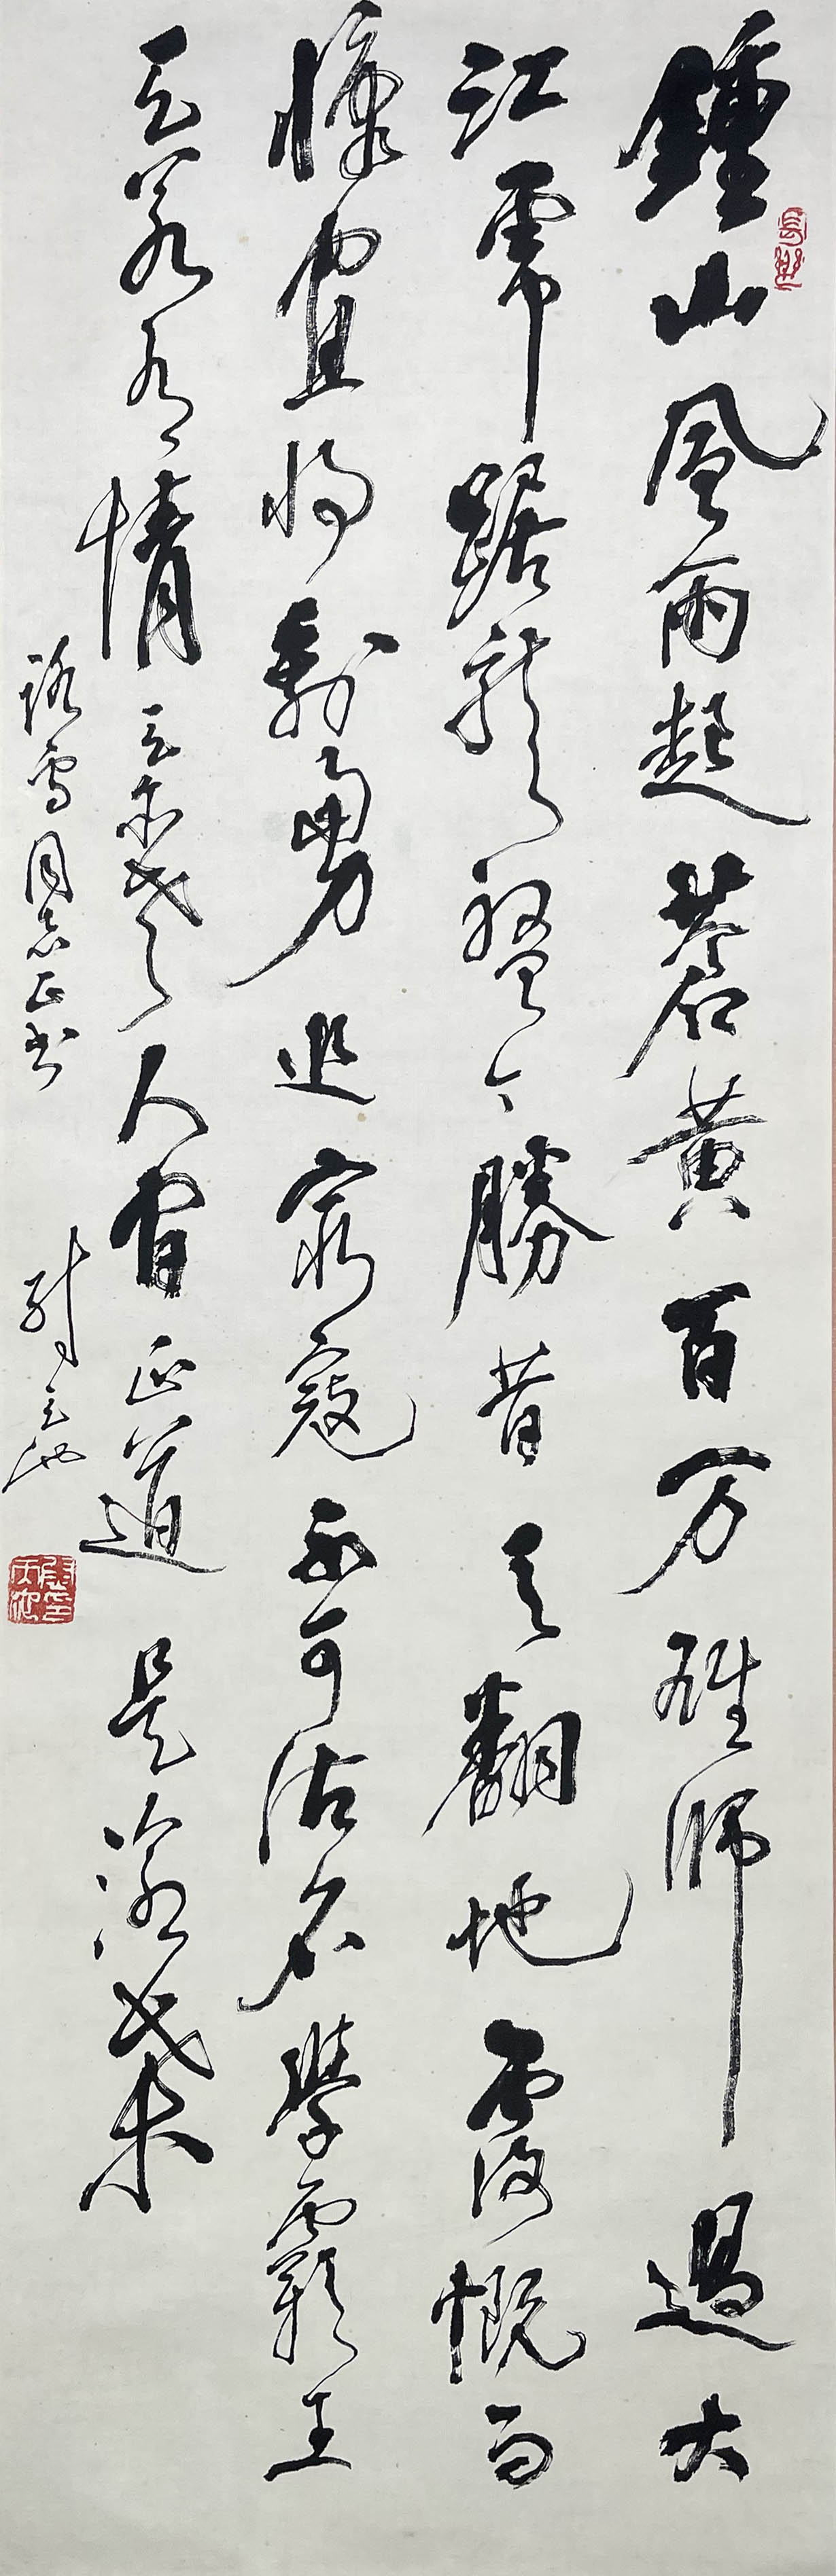 鍾山風雨起蒼黃百万雄师過大
江虎踞龍盤今勝昔天翻地覆慨而
慷宜将剩勇追窮寇不可沽名學霸王
天若有情天亦老人间正道是滄桑
雪同志正书
尉天池